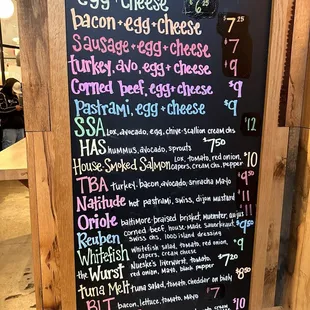 egg + cheese $6.25
bacon + egg + cheese $7.25
Sausage + egg + cheese $7
turkey, avo, egg + cheese $9
Corned beef, egg + cheese $9
Pastrami, egg + cheese $9
SSA Lox, avocado, egg, chive-scallion cream chs. $12
HAS hummus, avocado, sprouts $7.50
House Smoked Salmon Lox, tomato, red onion, capers, cream chs, pepper $10
TBA turkey, bacon, avocado, sriracha Mayo $9.50
Natitude hot pastrami, swiss, dijon mustard $11
Oriole baltimore-braised brisket, muenster, au jus $11
Reuben corned beef, house-made sauerkraut & swiss chs, 1000 island dressing $9.50
Whitefish Whitefish salad, tomato, red onion, capers, cream cheese $9
the Wurst Nueske's liverwurst, tomato, red onion, Mayo, black pepper $7.20
tuna Melt tuna salad, tomato, cheddar on bialy $8.50
BLT bacon, lettuce, tomato, Mayo $7
$10